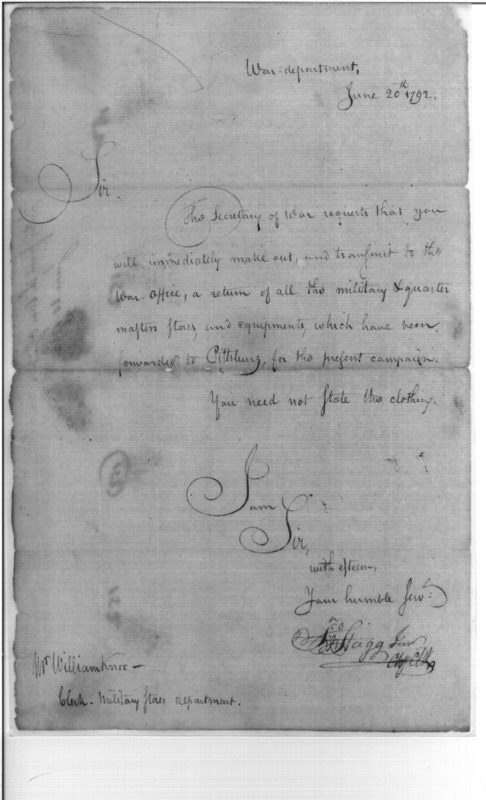 War department,
June 20th 1792.
Sir.
The Secretary of War requests that you
will immediately make out, and transmit to the
War office, a return of all the military & quarter
masters stores, and equipments, which have been
forwarded to Pittsburg, for the present campaign.
You need not state the clothing.
I am
Sir,
with esteem,
Your humble Servt:
Jno Stagg Junr
Chf Clk
Mr William Knox —
Clerk. Military stores department.